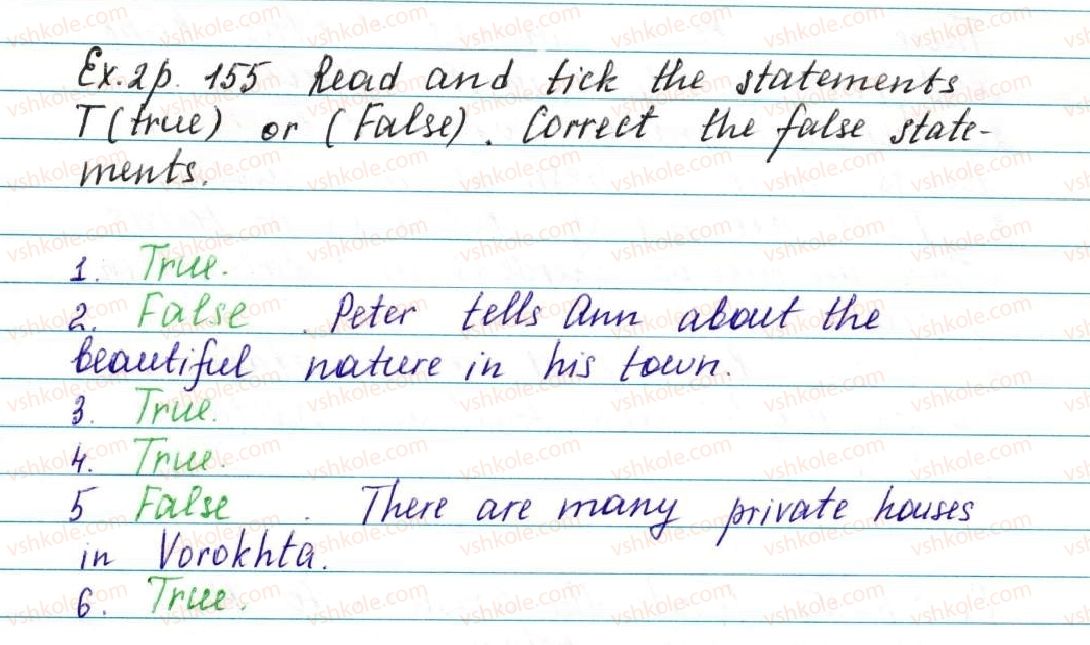 Ex. 2 p. 155 Read and tick the statements
T (true) or (False). Correct the false state-
ments.
1. True.
2. False. Peter tells Ann about the
beautiful nature in his town.
3. True.
4. True.
5 False. There are many private houses
in Vorokhta.
6. True.
vshkole.com